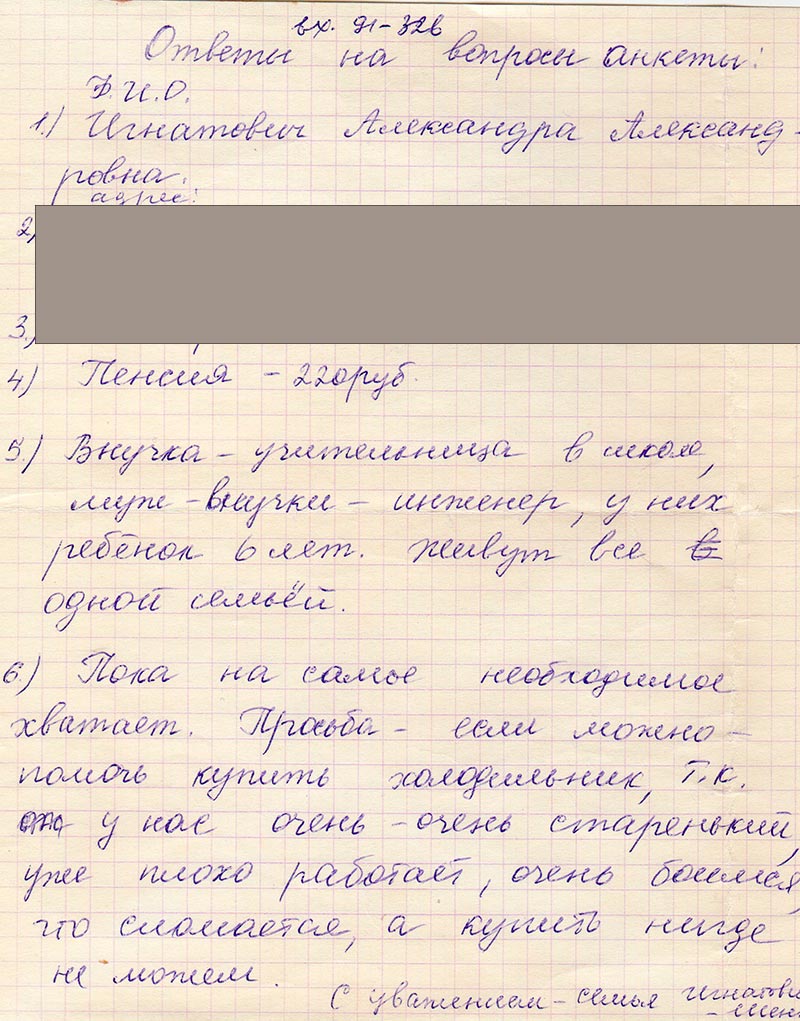 вх. 91-326
Ответы на вопросы анкеты:
Ф.И.О.
1.) Игнатович Александра Александ-
ровна.
адрес:
2)
3.)
4) Пенсия – 220 руб.
5.) Внучка – учительница в школе,
муж – внучки – инженер, у них
ребёнок 6 лет. Живут все в
одной семьёй.
6.) Пока на самое необходимое
хватает. Просьба – если можно –
помочь купить холодильник, т.к.
у нас очень – очень старенький,
уже плохо работает, очень боимся,
что сломается, а купить нигде
не можем.
С уважением – семья